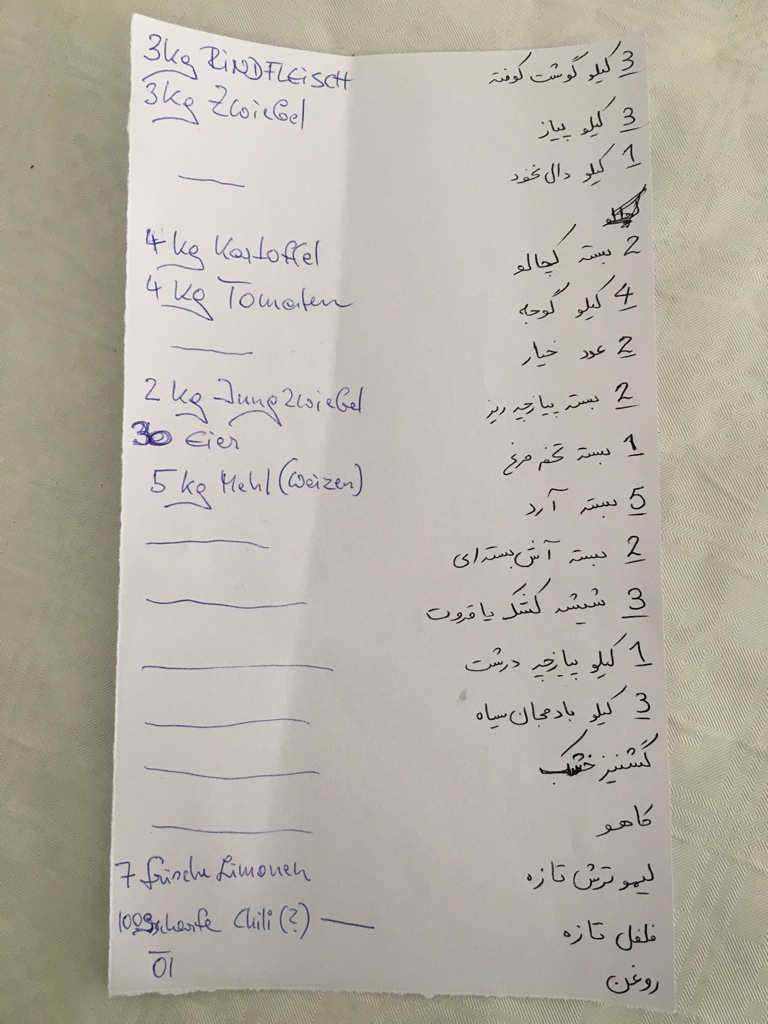 3kg RINDFLEISCH
3 کیلو گوشت کوفته
3kg Zwiebel
3 کیلو پیاز
1 کیلو دال نخود
4 kg Kartoffel
2 بسته کچالو
4 kg Tomaten
4 کیلو گوجه
2 عدد خیار
2 kg Jungzwiebel
2 بسته پیازچه ریز
30 Eier
1 بسته تخم مرغ
5 kg Mehl (Weizen)
5 بسته آرد
2 بسته آش بسته ای
3 شیشه کشک یا قروت
1 کیلو پیازچه درشت
3 کیلو بادمجان سیاه
گشنیز خشک
کاهو
7 frische Limonen
لیمو ترش تازه
100g scharfe Chili (?)
فلفل تازه
Öl
روغن